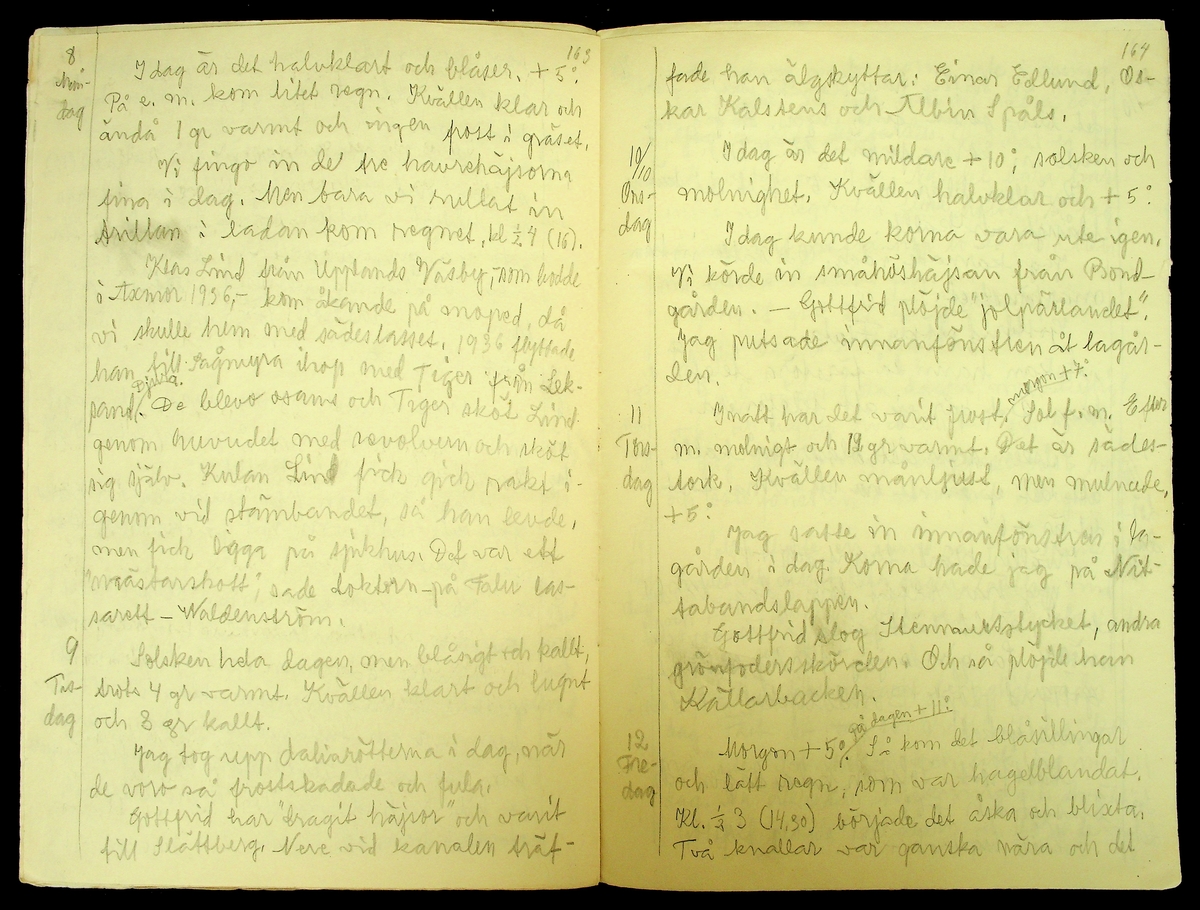 163
8
Mån-
dag
Idag är det halvklart och blåser. + 5°.
På e. m. kom litet regn. Kvällen klar och
ändå 1 gr varmt och ingen frost i gräset.
Vi fingo in de tre havrehäjsorna
fina i dag. Men bara vi rullat in
trillan i ladan kom regnet, kl ½ 4 (16).
Klas Lind från Upplands Väsby,- som bodde
i Axmor 1936,- kom åkande på moped, då
vi skulle hem med sädeslasset. 1936 flyttade
han till Sågmyra ihop med Tiger från Lek-
sand, Djura. De blevo osams och Tiger sköt Lind
genom huvudet med revolvern och sköt
sig själv. Kulan Lind fick gick rakt i-
genom vid stämbandet, så han levde,
men fick ligga på sjukhus. Det var ett
"mästarskott", sade doktorn på Falu las-
sarett - Waldenström.
9
Tis-
dag
Solsken hela dagen, men blåsigt och kallt,
trots 4 gr varmt. Kvällen klart och lugnt
och 3 gr kallt.
Jag tog upp daliarötterna i dag, när
de voro så frostskadade och fula.
Gottfrid har "dragit häjsor" och varit
till Slättberg. Nere vid kanalen träf-
164
fade han älgskyttar: Einar Edlund, Os-
kar Kalstens och Albin Spåls.
10/10
Ons-
dag
Idag är det mildare + 10°, solsken och
molnighet. Kvällen halvklar och + 5°.
Idag kunde korna vara ute igen.
Vi körde in småhöshäjsan från Bond-
gården. - Gottfrid plöjde "jolpärlandet".
Jag putsade innanfönstren åt lagår-
den.
11
Tors-
dag
Inatt har det varit frost, morgon + 7°. Sol f. m. Efter
m. molnigt och 12 gr varmt. Det är sädes-
tork. Kvällen månljust, men mulnade,
+ 5°.
Jag satte in innanfönstren i la-
gården i dag. Korna hade jag på Nit-
tabandslappen.
Gottfrid slog Stenmurstycket, andra
grönfodersskörden. Och så plöjde han
Källarbacken.
12
Fre-
dag
Morgon + 5°, på dagen + 11°. Så kom det blåsillingar
och lätt regn, som var hagelblandat.
Kl. ½ 3 (14,30) började det åska och blixta.
Två knallar var ganska nära och det